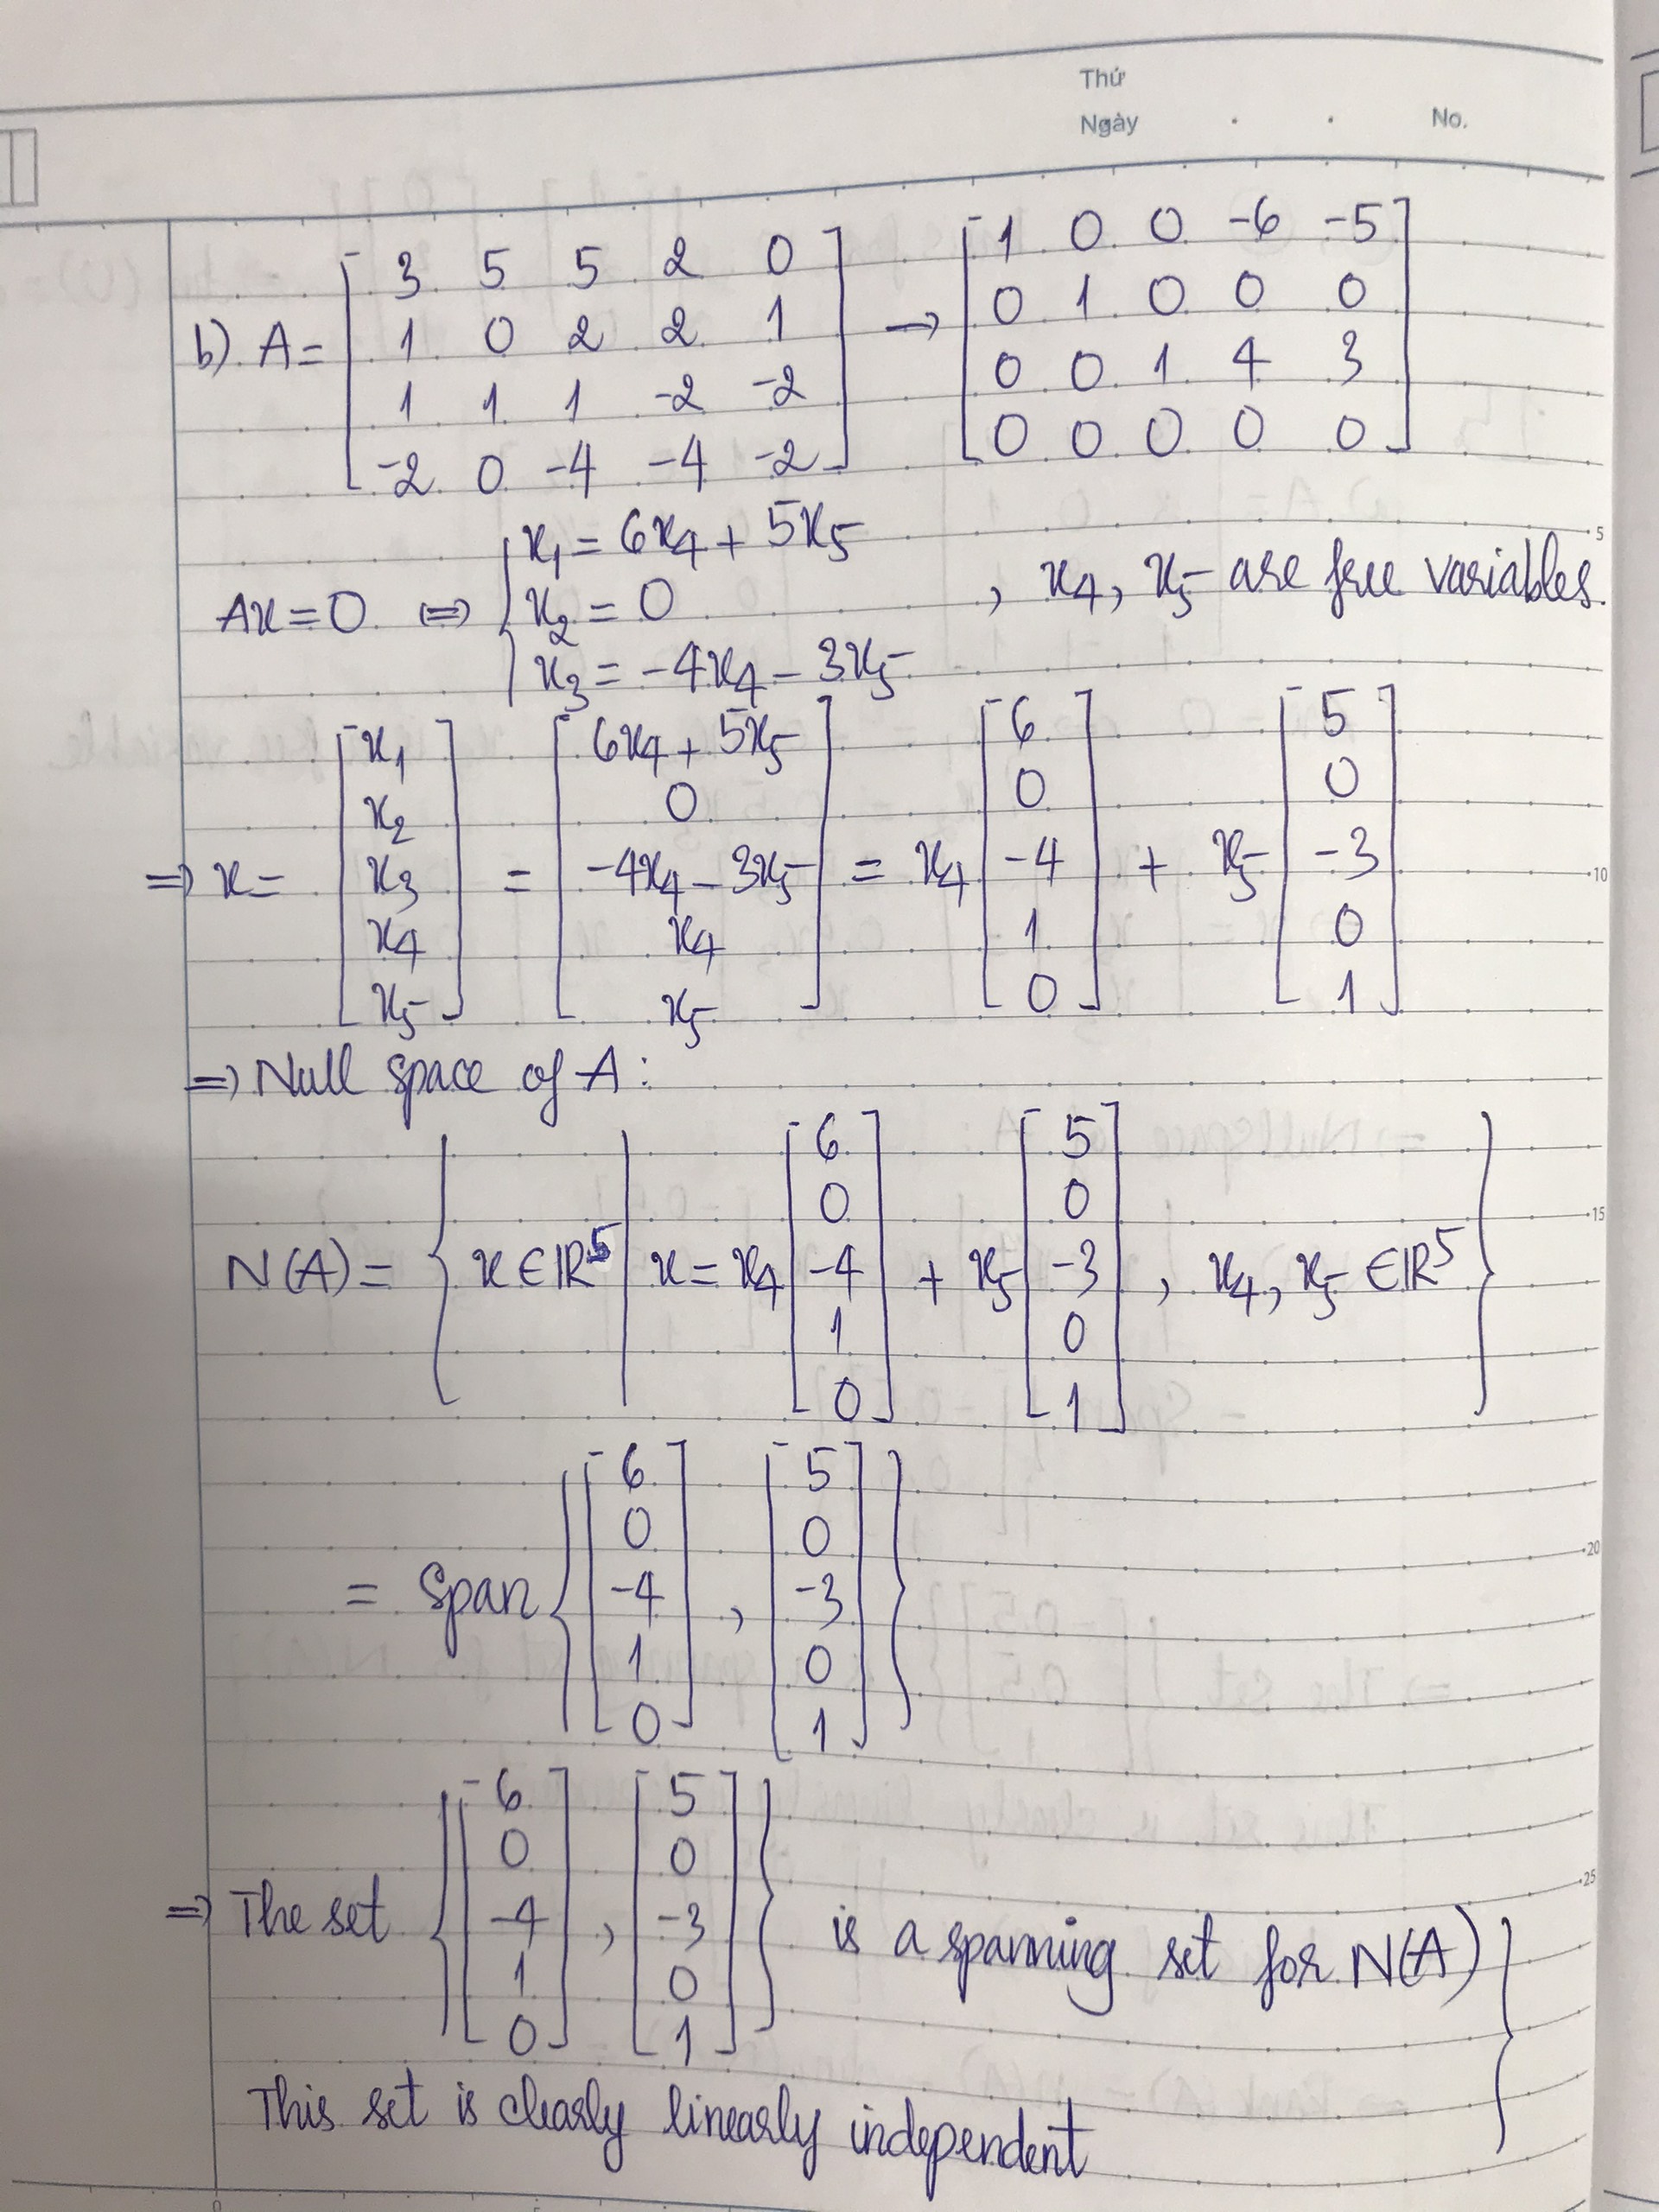 Thứ
Ngày . . No.
b) A = [3 5 5 2 0; 1 0 2 2 1; 1 1 1 -2 -2; -2 0 -4 -4 -2] → [1 0 0 -6 -5; 0 1 0 0 0; 0 0 1 4 3; 0 0 0 0 0]
Ax = 0 ⇔ { x₁ = 6x₄ + 5x₅
x₂ = 0 , x₄, x₅ are free variables.
x₃ = -4x₄ - 3x₅
⇒ x = [x₁; x₂; x₃; x₄; x₅] = [6x₄ + 5x₅; 0; -4x₄ - 3x₅; x₄; x₅] = x₄ [6; 0; -4; 1; 0] + x₅ [5; 0; -3; 0; 1]
⇒ Null space of A :
N(A) = { x ∈ ℝ⁵ | x = x₄ [6; 0; -4; 1; 0] + x₅ [5; 0; -3; 0; 1] , x₄, x₅ ∈ ℝ⁵ }
= Span { [6; 0; -4; 1; 0] , [5; 0; -3; 0; 1] }
⇒ The set { [6; 0; -4; 1; 0] , [5; 0; -3; 0; 1] } is a spanning set for N(A) }
This set is clearly linearly independent
5
10
15
20
25
0
5